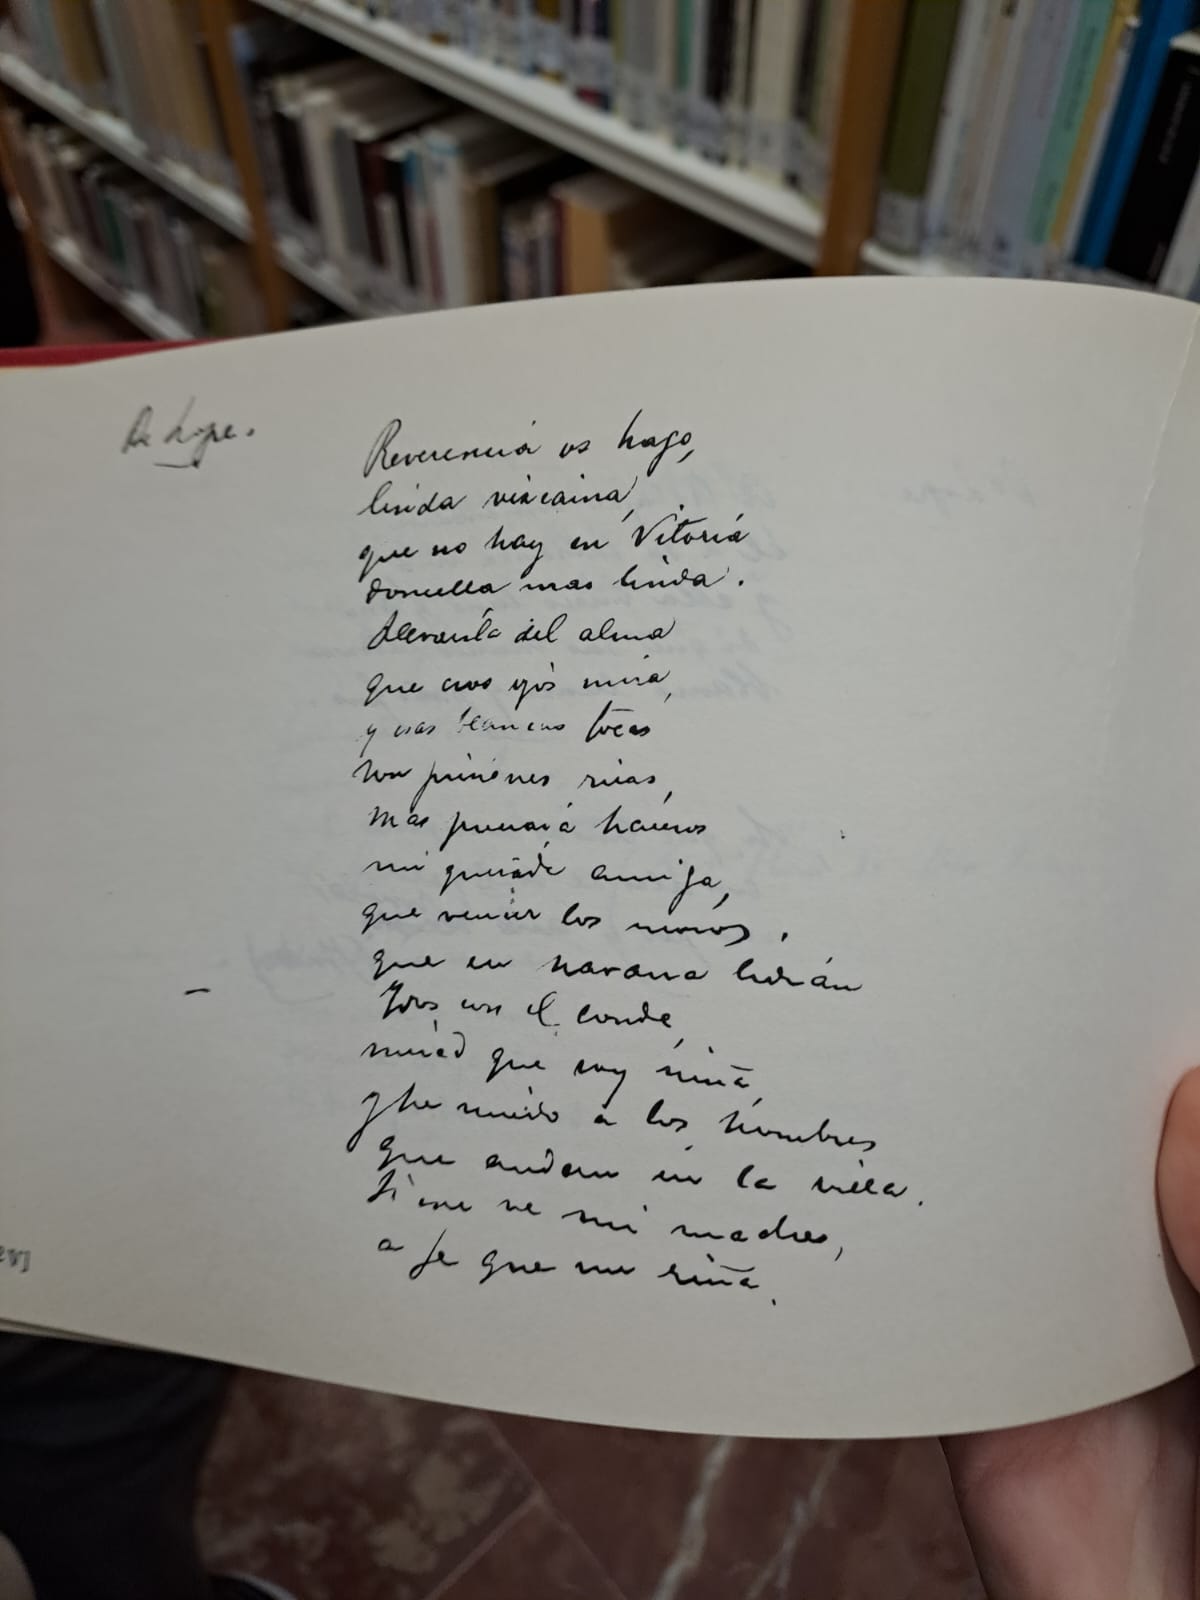 De Lope.
Reverencia os hago,
linda vizcaina,
que no hay en Vitoria
doncella mas linda.
Llevaisla del alma
que esos ojos mira,
y esas blancas tocas
son prisiones ricas,
mas preciará haceros
mi querida amiga,
que vencer los moros,
que en navarra lidian
– Idos con el conde,
mirad que soy niña,
y he miedo a los hombres
que andan en la villa.
Si me ve mi madre,
a fe que me riña.